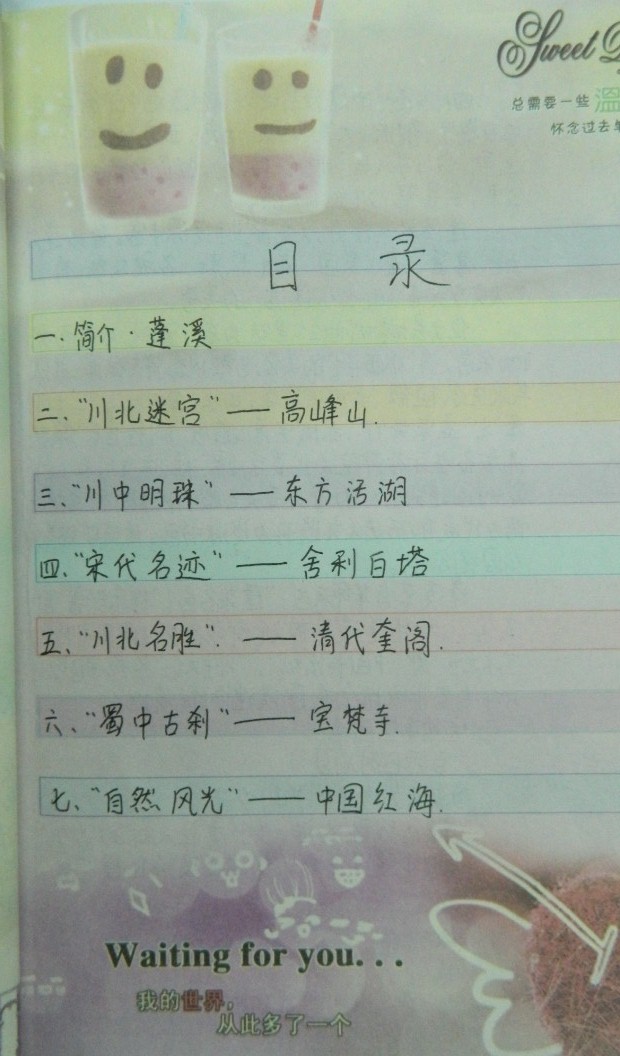 Sweet
总需要一些温
怀念过去
目 录
一·简介·蓬溪
二、"川北迷宫"——高峰山.
三、"川中明珠"——东方活湖
四、"宋代名迹"——舍利白塔
五、"川北名胜".——清代奎阁.
六、"蜀中古刹"——宝梵寺.
七、"自然风光"——中国红海.
Waiting for you...
我的世界,
从此多了一个